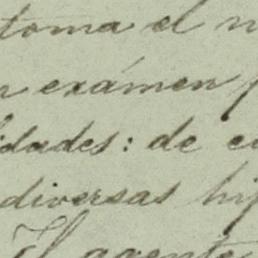 toma el
exámen
idades: de
diversas hip
El agente